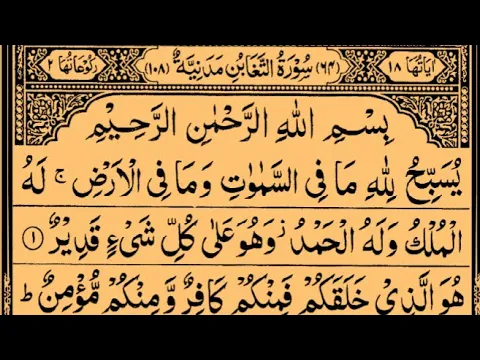 اٰيَاتُهَا ١٨ (٦٤) سُوْرَةُ التَّغَابُنِ مَدَنِيَّةٌ (١٠٨) رُكُوْعَاتُهَا ٢
بِسْمِ اللّٰهِ الرَّحْمٰنِ الرَّحِيْمِ
يُسَبِّحُ لِلّٰهِ مَا فِى السَّمٰوٰتِ وَمَا فِى الْاَرْضِ ۚ لَهُ
الْمُلْكُ وَلَهُ الْحَمْدُ ۡ وَهُوَ عَلٰى كُلِّ شَىْءٍ قَدِيْرٌ ①
هُوَ الَّذِىْ خَلَقَكُمْ فَمِنْكُمْ كَافِرٌ وَّمِنْكُمْ مُّؤْمِنٌ ؕ